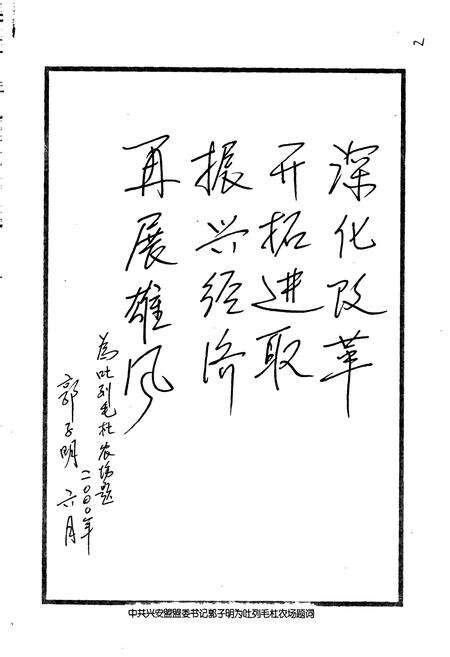 2
深化改革
开拓进取
振兴经济
再展雄风
为吐列毛杜农场题
二000年
六月
郭子明
中共兴安盟盟委书记郭子明为吐列毛杜农场题词